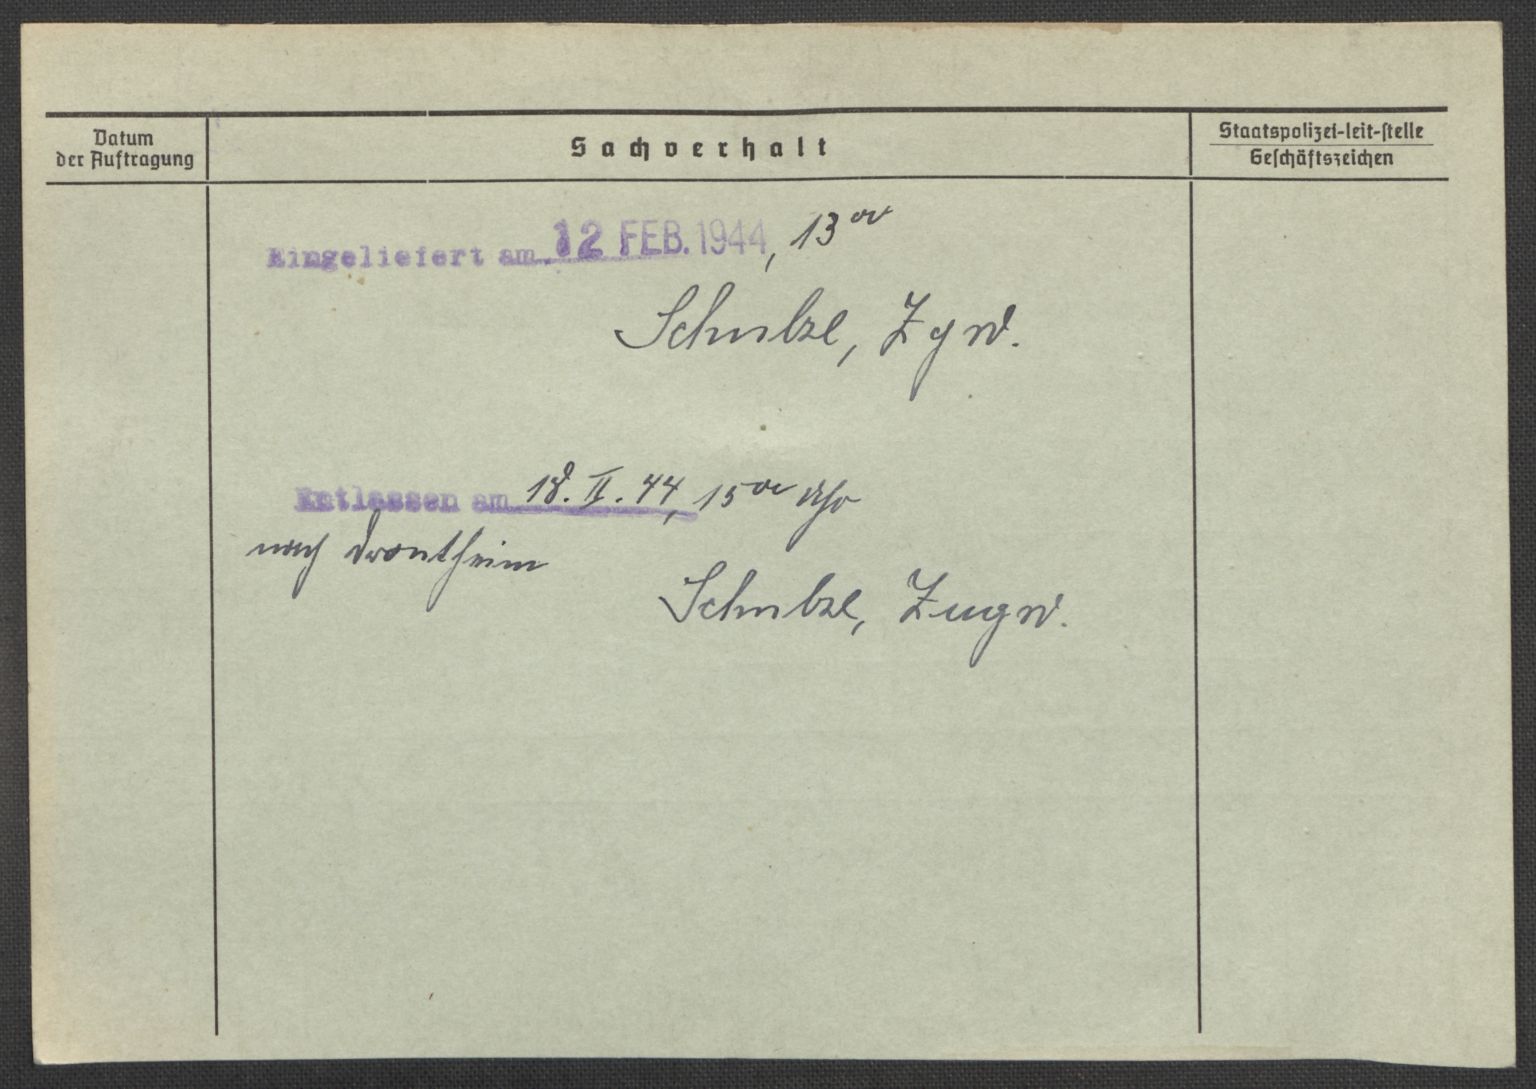 Datum
der Auftragung
Sachverhalt
Staatspolizei-leit-stelle
Geschäftszeichen
Eingeliefert am 12 FEB. 1944, 13 00
Schulze, Zgw.
Entlassen am 18. II. 44, 15 00 Uhr
nach Drontheim
Schulze, Zugw.